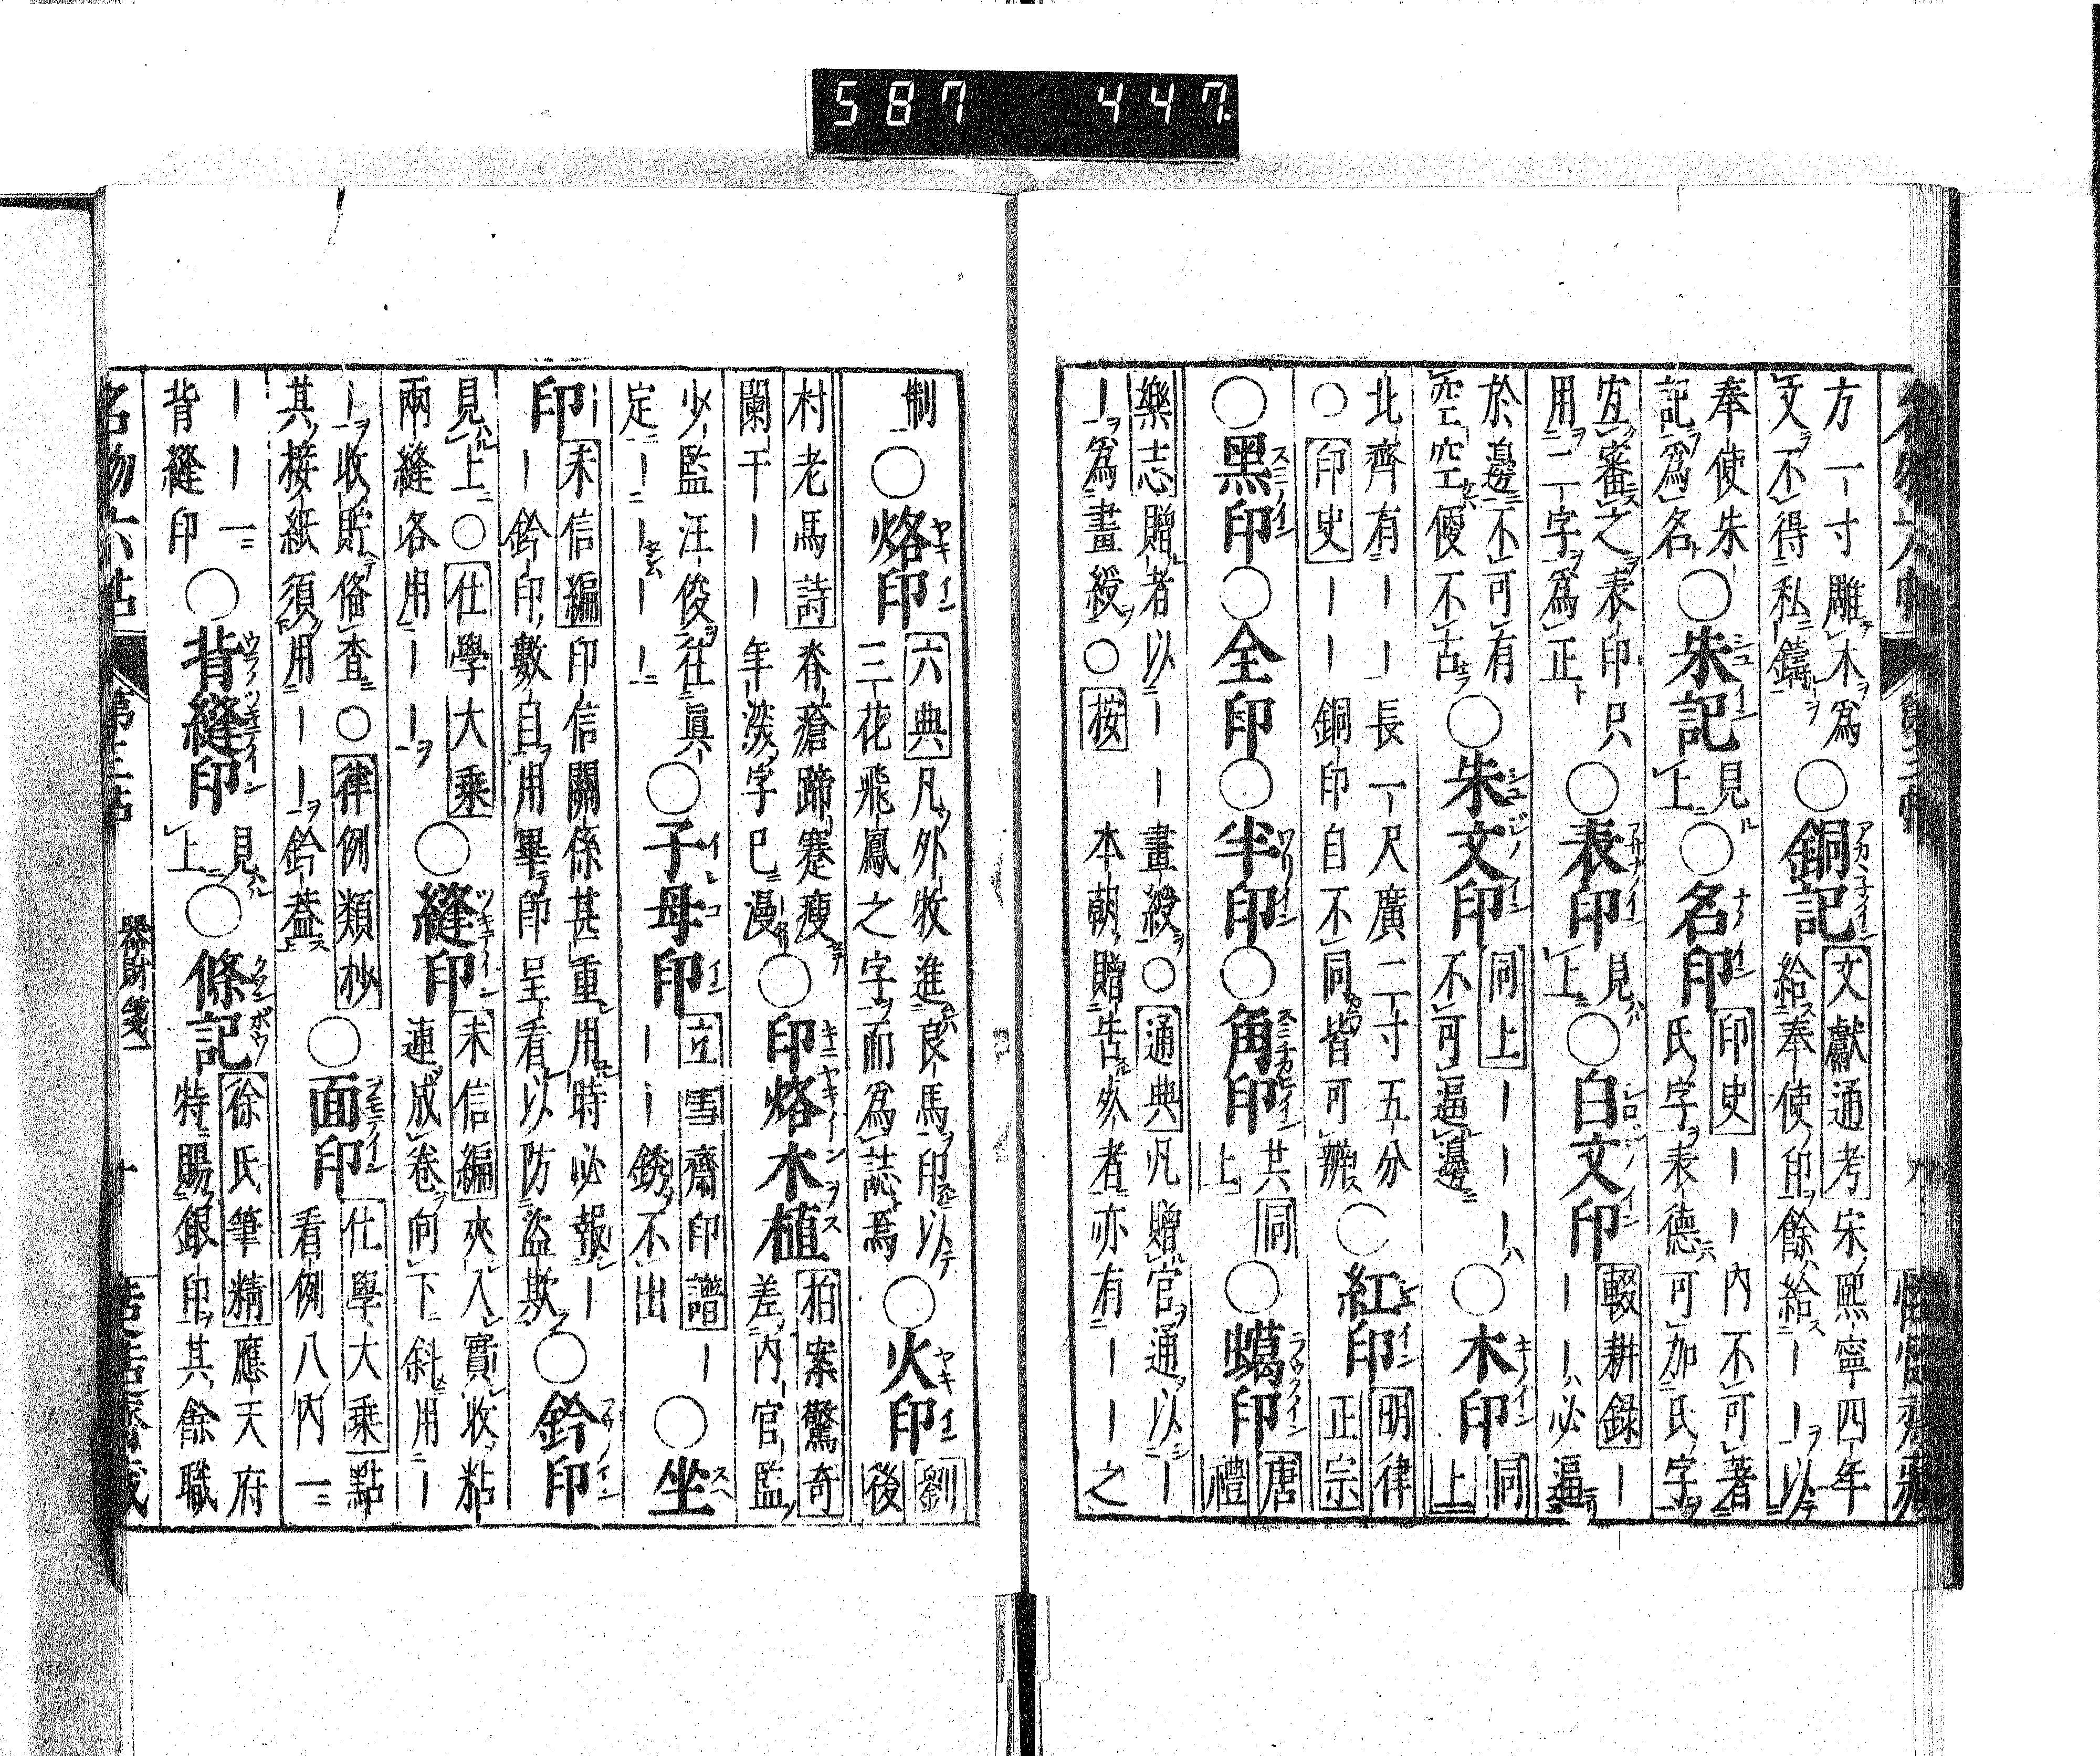 587 447
方一寸雕木爲
文不得私鑄
○銅記
文獻通考宋熙寧四年
給奉使印餘給――以
奉使朱
記爲名
○朱記
見
上
○名印
印史――內不可著
氏字表德可加氏字
宐審之表印只
用二字爲正
○表印
見
上
○白文印
輟耕録―
――必逼
於邊不可有
空空便不古
○朱文印
同上―――
不可逼邊
○木印
同
上
北齊有――長一尺廣二寸五分
○印史――銅印自不同皆可辨
○紅印
明律
正宗
○黑印○全印○半印○角印
共同
上
○蠣印
唐
禮
樂志贈者以――畫綬○通典凡贈官通以―
―爲畫綬○按 本朝贈告外者亦有――之
制
○烙印
六典凡外牧進良馬印以
三花飛鳳之字而爲誌焉
○火印
劉
後
村老馬詩脊瘡蹄蹇瘦
闌干――年淡字已漫
○印烙木植
拍案驚奇
差內官監
少監汪俊往眞
定――――
○子母印
立雪齋印譜―
――銹不出
○坐
印
未信編印信關係甚重用時必報―
―鈐印數自用畢即呈看以防盜欺
○鈐印
見上○仕學大乘
兩縫各用――
○縫印
未信編夾入實收粘
連成卷向下斜用―
―收貯俻查○律例類抄
其接紙須用――鈐葢
○面印
仕學大乘點
看例八內一
―――一
背縫印
○背縫印
見
上
○條記
徐氏筆精應天府
特賜銀印其餘職
名物六帖 第三帖 器財箋一